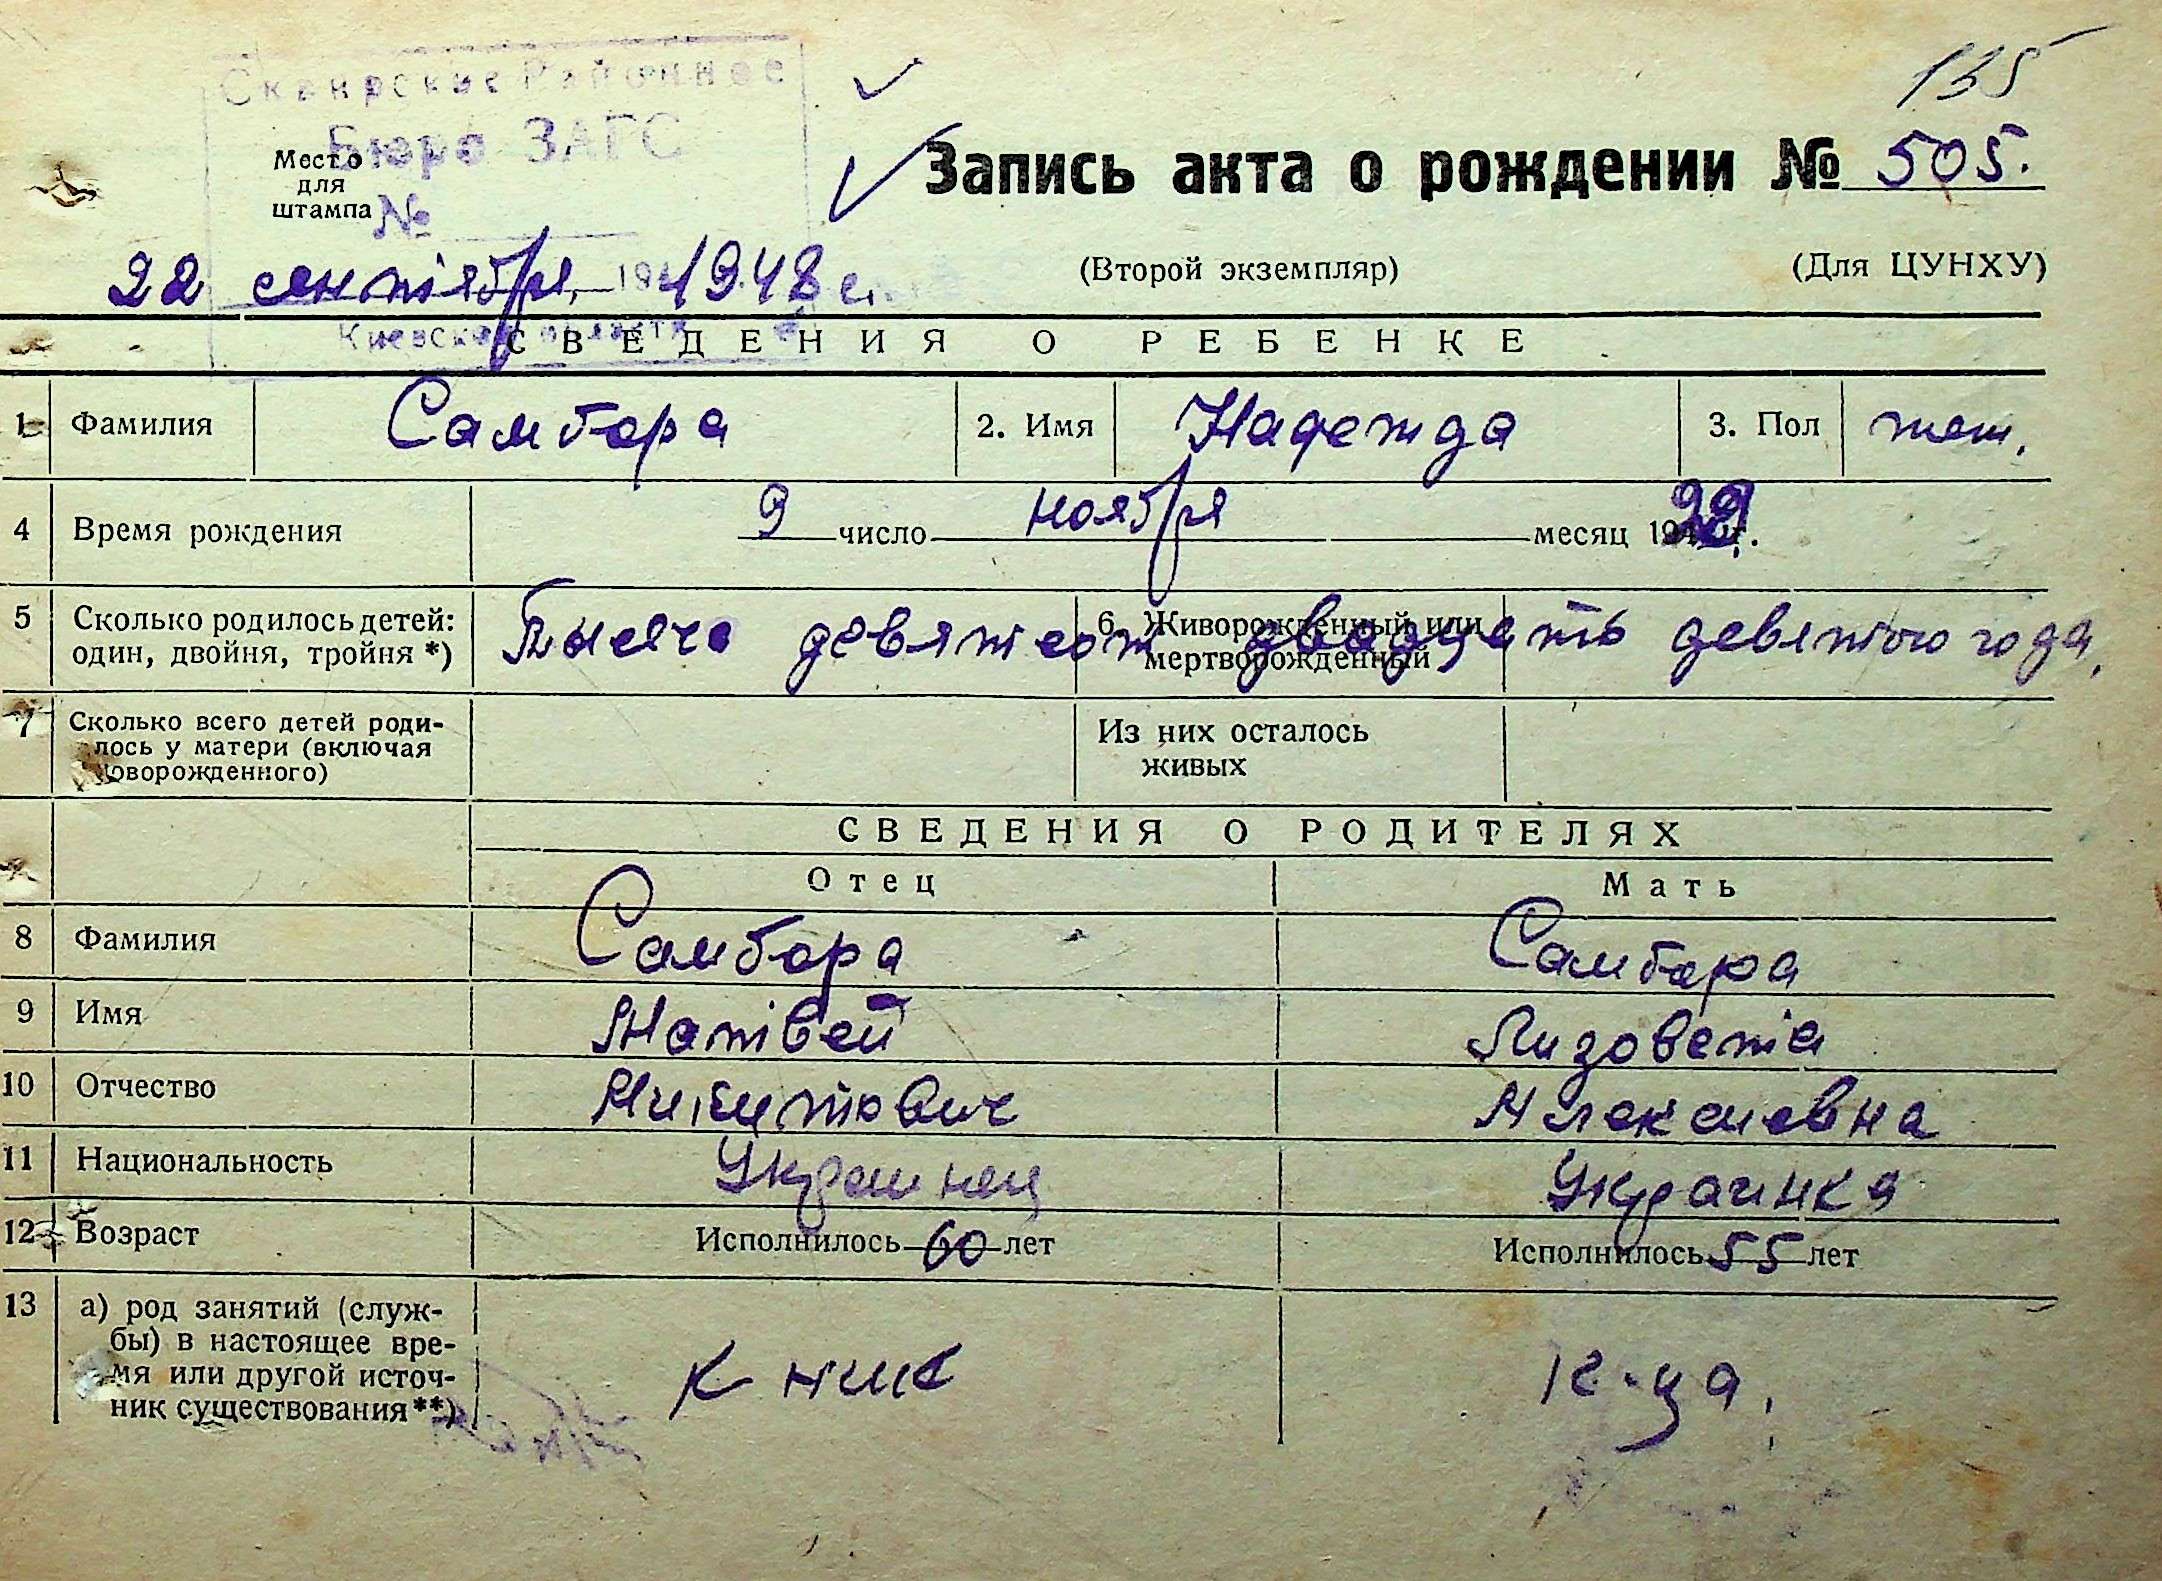 135
Сквирское Районное
Бюро ЗАГС
Место
для
штампа
№
Запись акта о рождении № 505.
22 сентября 194 1948 г.
(Второй экземпляр) (Для ЦУНХУ)
Киевской области
СВЕДЕНИЯ О РЕБЕНКЕ
1 Фамилия Самбора 2. Имя Надежда 3. Пол жен.
4 Время рождения 9 число ноября месяц 1929 г.
5 Сколько родилось детей: 6. Живорожденный или
один, двойня, тройня *) мертворожденный
Тысяча девятсот двадцать девятого года.
7 Сколько всего детей роди-
лось у матери (включая
новорожденного)
Из них осталось
живых
СВЕДЕНИЯ О РОДИТЕЛЯХ
Отец Мать
8 Фамилия Самбора Самбора
9 Имя Матвей Лизовета
10 Отчество Никитович Алексеевна
11 Национальность Украинец Украинка
12 Возраст Исполнилось 60 лет Исполнилось 55 лет
13 а) род занятий (служ-
бы) в настоящее вре-
мя или другой источ-
ник существования **)
к ник к-ца.